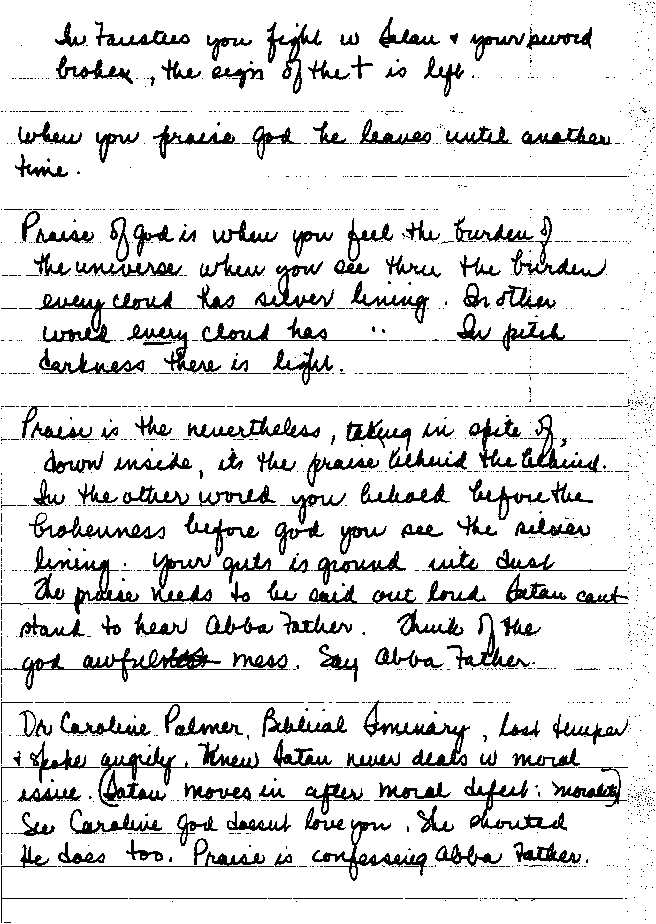 In Faustus you fight w Satan + your sword
broken, the sign of the † is left.
When you praise God he leaves until another
time.
Praise of god is when you feel the burden of
the universe when you see thru the burden
every cloud has silver lining. In other
world every cloud has " In pitch
darkness there is light.
Praise is the nevertheless, taking in spite of,
down inside, its the praise behind the behind.
In the other world you behold before the
brokenness before god you see the silver
lining. Your guts is ground into dust
The praise needs to be said out loud. Satan cant
stand to hear Abba Father. Think of the
god awful mess. Say Abba Father.
Dr Caroline Palmer, Biblical Seminary, lost temper
+ spoke angrily. Knew Satan never deals w moral
issue. (Satan moves in after moral defeit: morality)
See Caroline God doesnt love you. She shouted
He does too. Praise is confessing Abba Father.